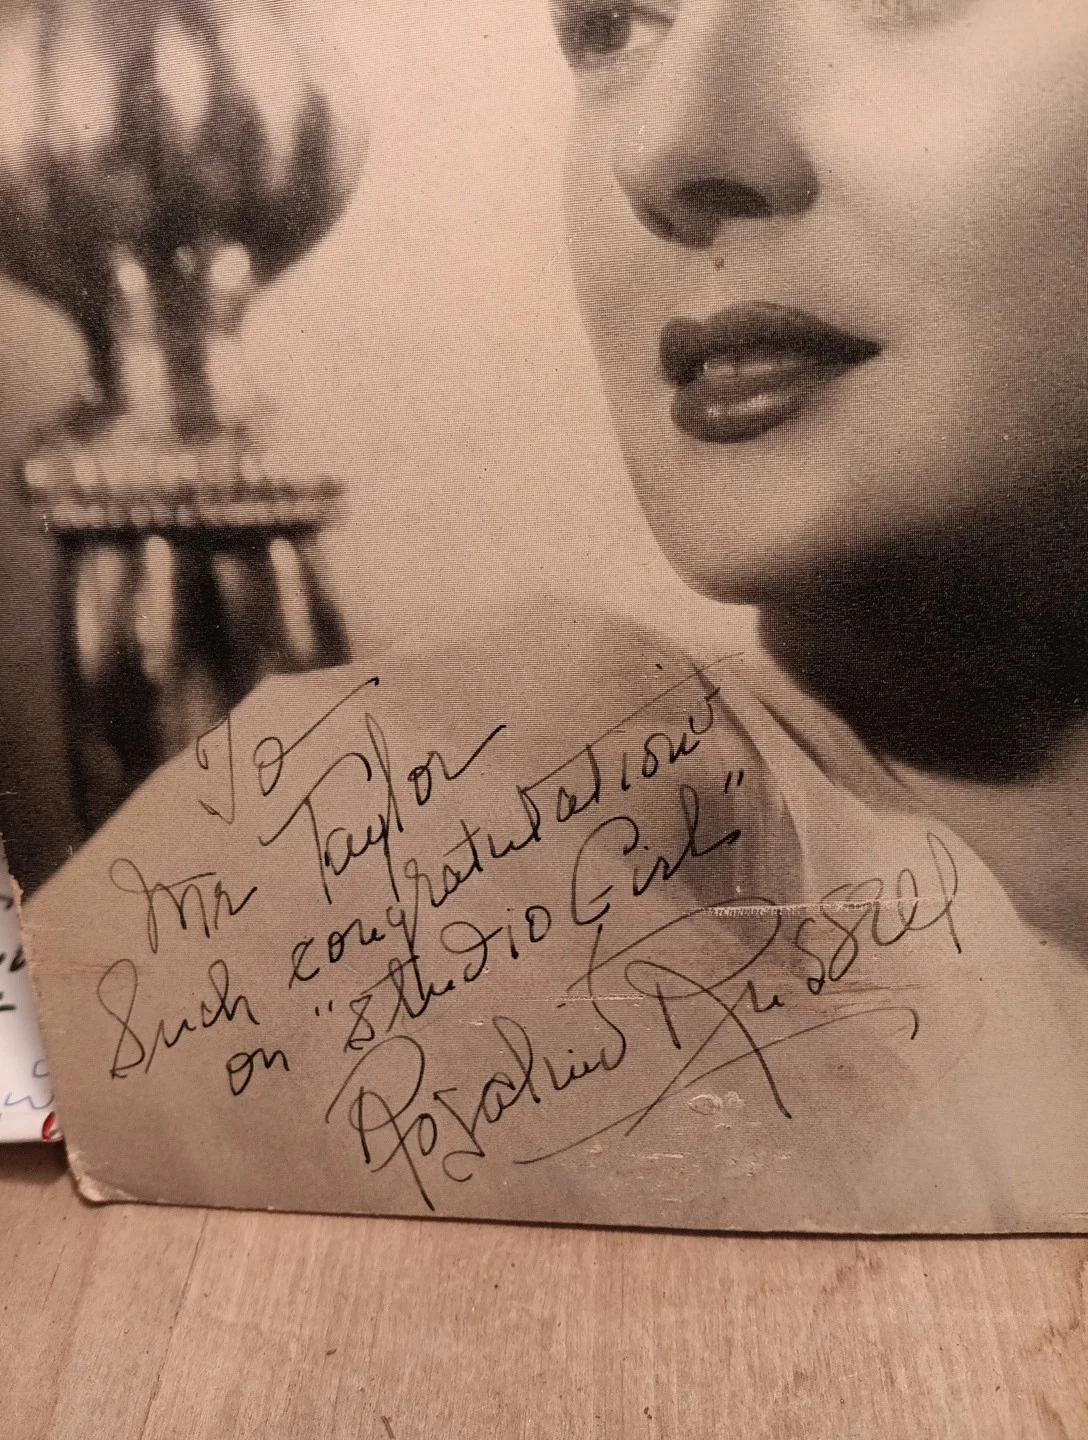 To
Mr Taylor
Such congratulations
on "Studio Girls"
Rosalind Russell